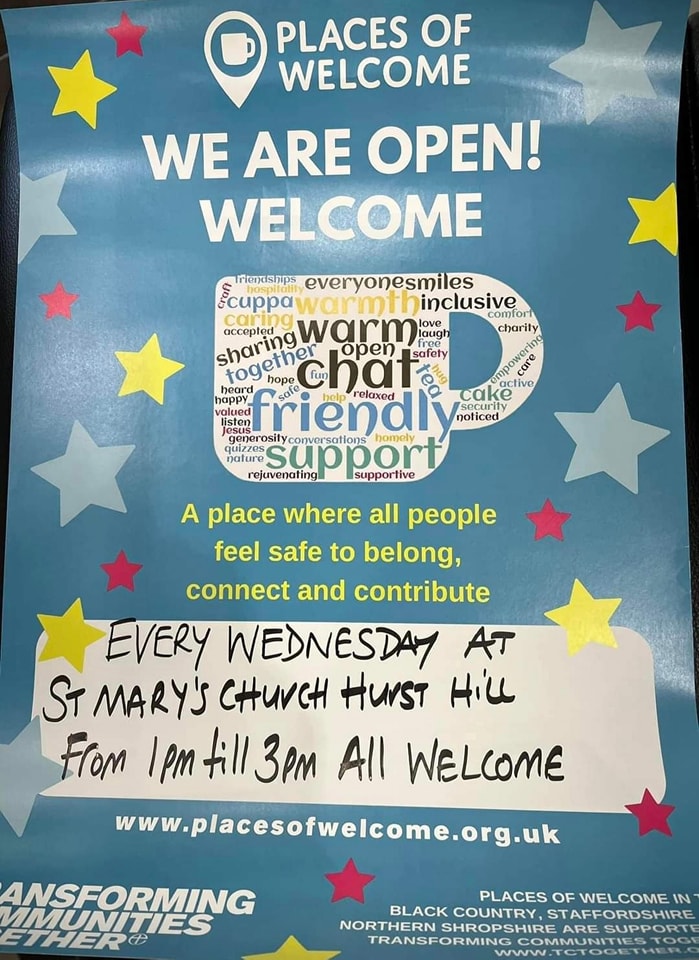 PLACES OF
WELCOME
WE ARE OPEN!
WELCOME
friendships
hospitality
everyonesmiles
craft
cuppa
warmth
inclusive
comfort
caring
accepted
warm
love
laugh
charity
sharing
open
free
safety
together
chat
hug
empowering
care
hope
fun
tea
active
heard
safe
help
relaxed
cake
happy
friendly
security
valued
noticed
listen
Jesus
generosity
conversations
homely
quizzes
support
nature
rejuvenating
supportive
A place where all people
feel safe to belong,
connect and contribute
EVERY WEDNESDAY AT
ST MARY'S CHURCH HURST HiLL
From 1pm till 3pm All WELCOME
www.placesofwelcome.org.uk
ANSFORMING
MMUNITIES
ETHER
PLACES OF WELCOME IN
BLACK COUNTRY, STAFFORDSHIRE
NORTHERN SHROPSHIRE ARE SUPPORTE
TRANSFORMING COMMUNITIES TOGE
WWW.TCTOGETHER.O